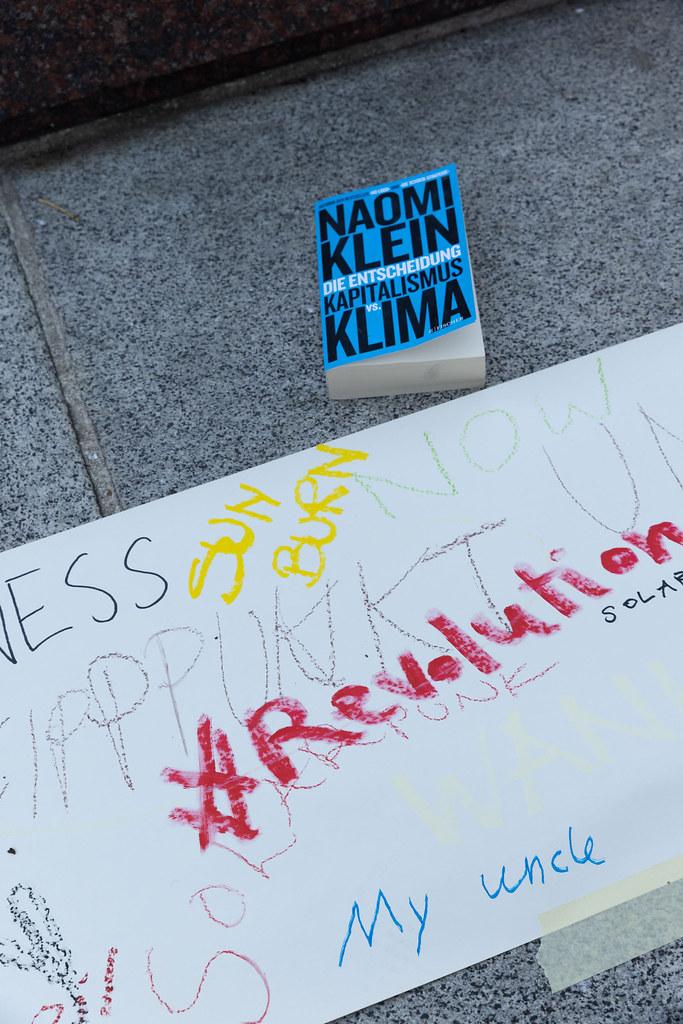 NAOMI
KLEIN
DIE ENTSCHEIDUNG
KAPITALISMUS
VS.
KLIMA
FISCHER
NOW
SUN
BURN
NESS
UN
KIPPPUNKT
#Revolution
SOLAR
PUNK
WAN
My uncle